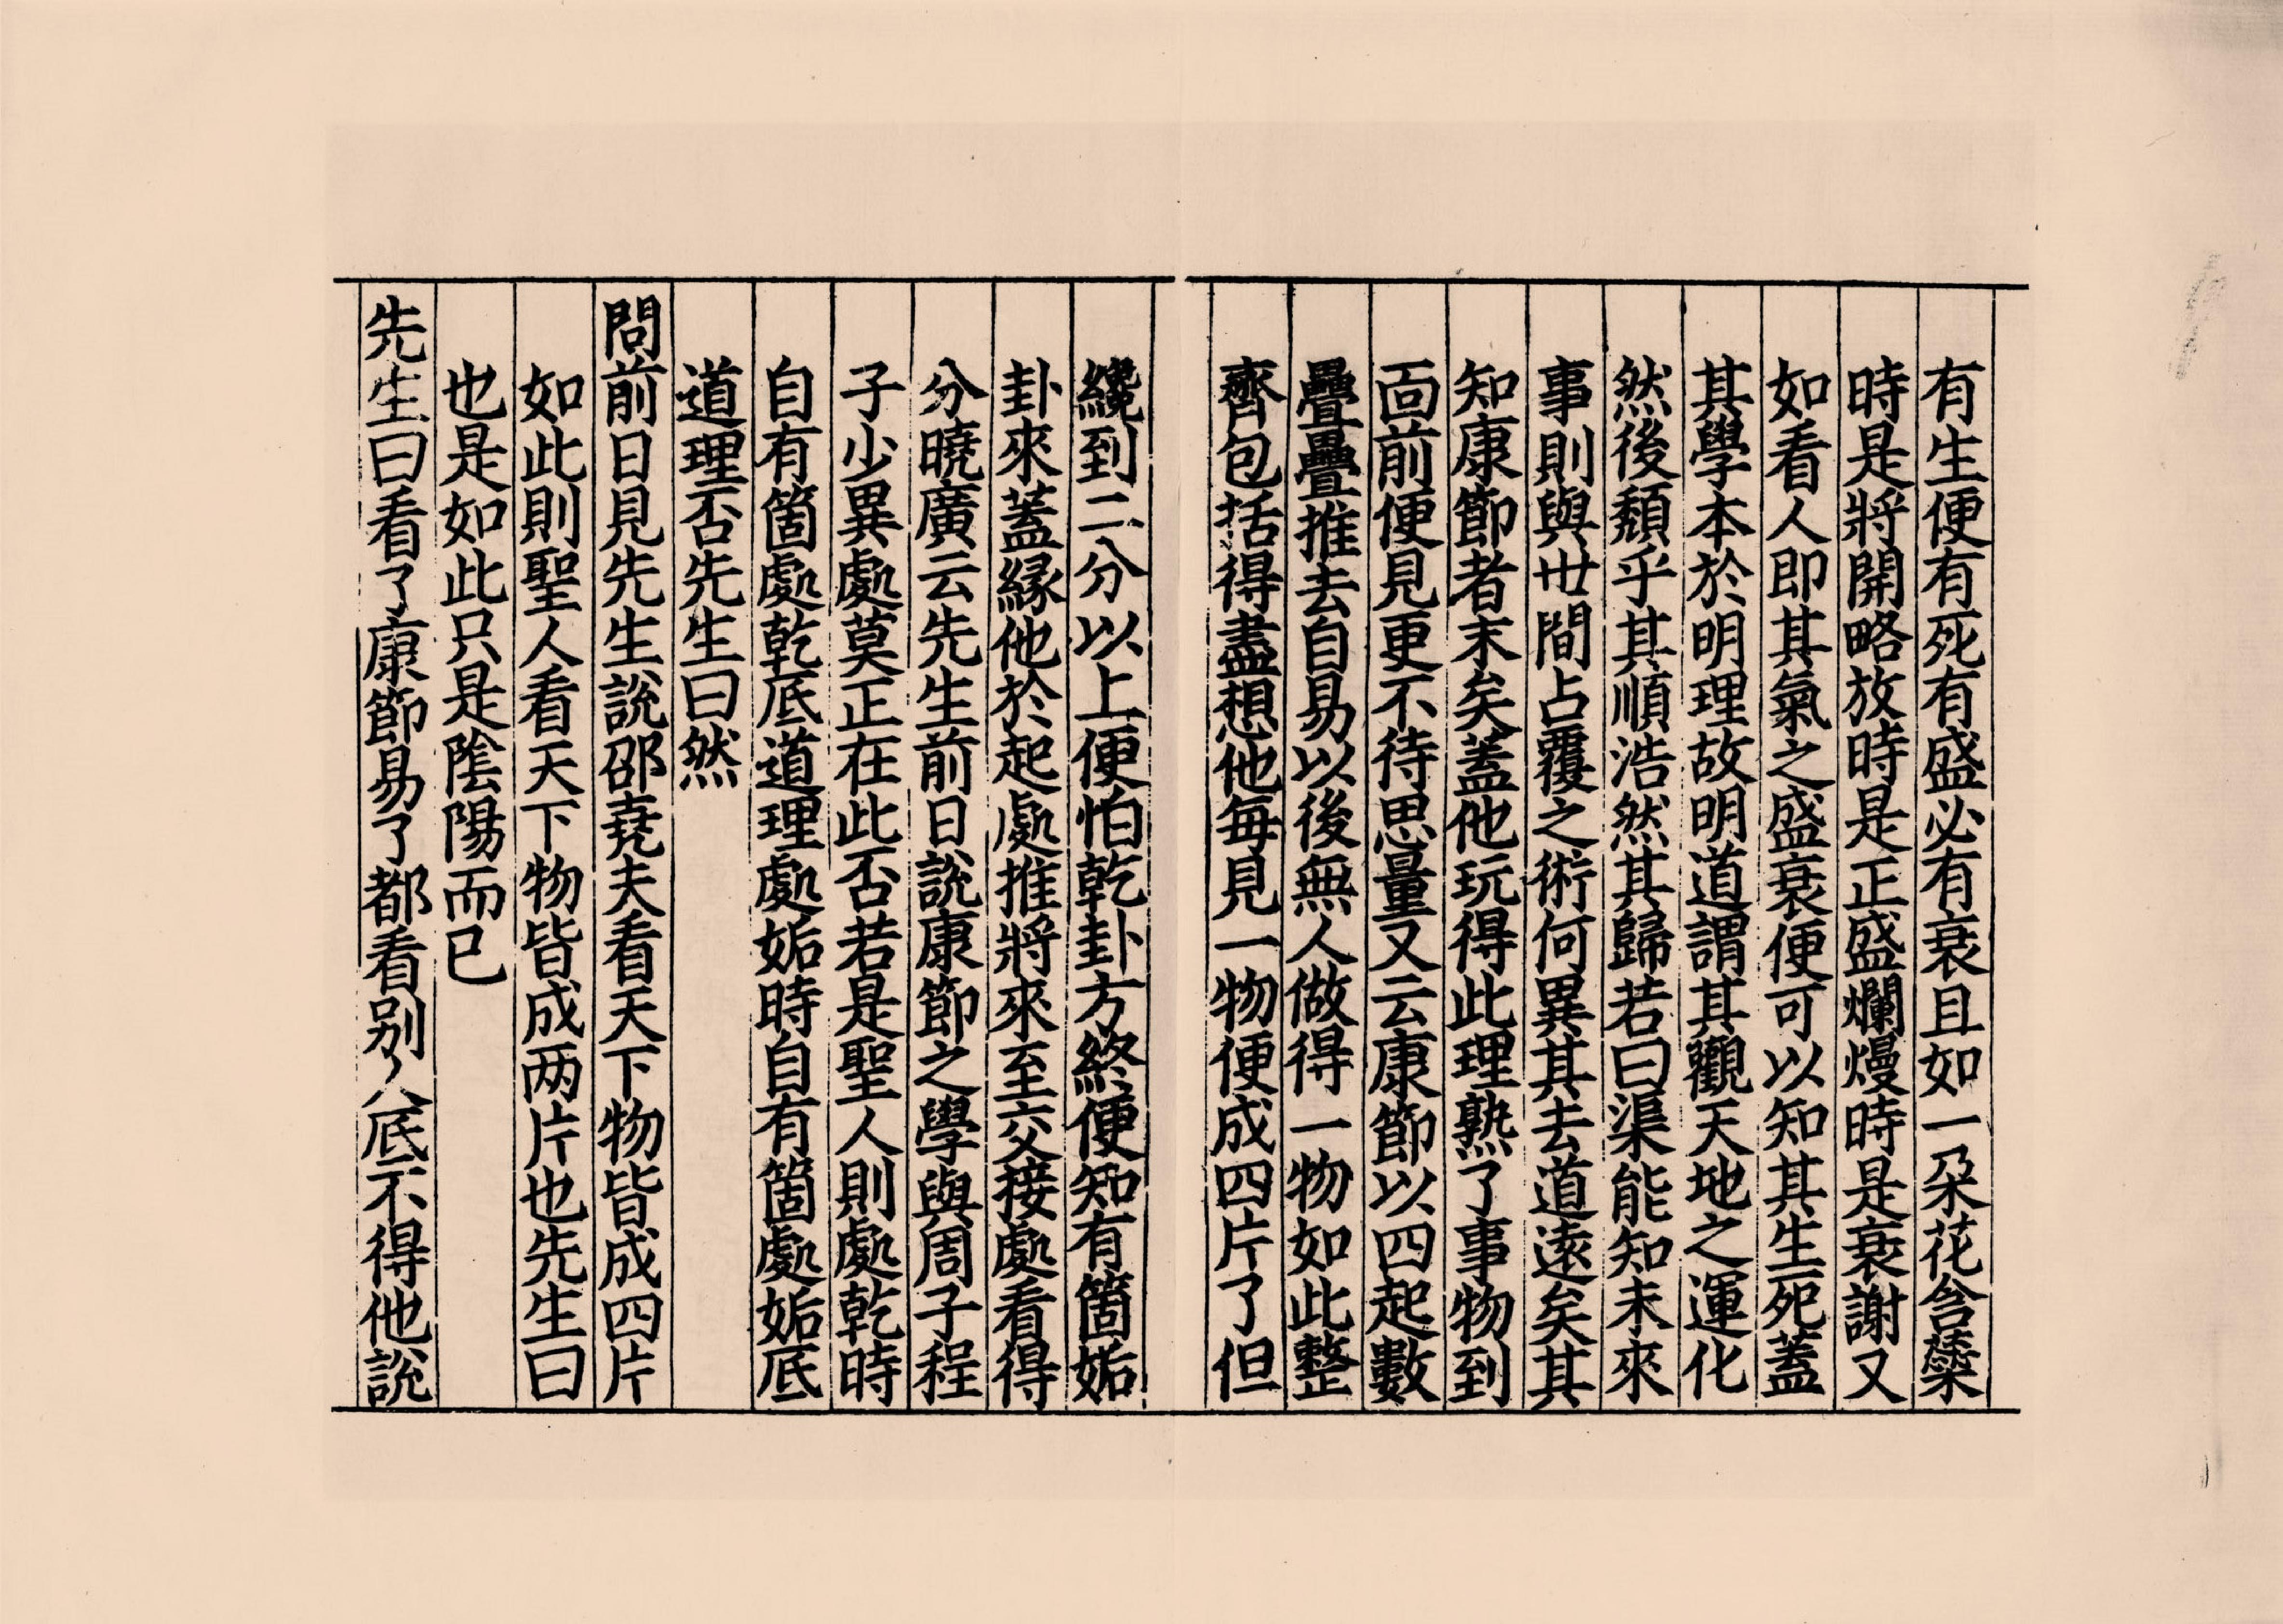 有生便有死有盛必有衰且如一朶花含蘂
時是將開略放時是正盛爛熳時是衰謝又
如看人即其氣之盛衰便可以知其生死蓋
其學本於明理故明道謂其觀天地之運化
然後頹乎其順浩然其歸若曰渠能知未來
事則與丗間占覆之術何異其去道逺矣其
知康節者末矣蓋他玩得此理熟了事物到
靣前便見更不待思量又云康節以四起數
疊疊推去自易以後無人做得一物如此整
齊包括得盡想他每見一物便成四片了但
纔到二分以上便怕乾卦方終便知有箇姤
卦來蓋縁他於起處推將來至六爻接處看得
分曉廣云先生前日說康節之學與周子程
子少異處莫正在此否若是聖人則處乾時
自有箇處乾底道理處姤時自有箇處姤底
道理否先生曰然
問前日見先生說邵堯夫看天下物皆成四片
如此則聖人看天下物皆成两片也先生曰
也是如此只是隂陽而已
先生曰看了康節易了都看别人底不得他說